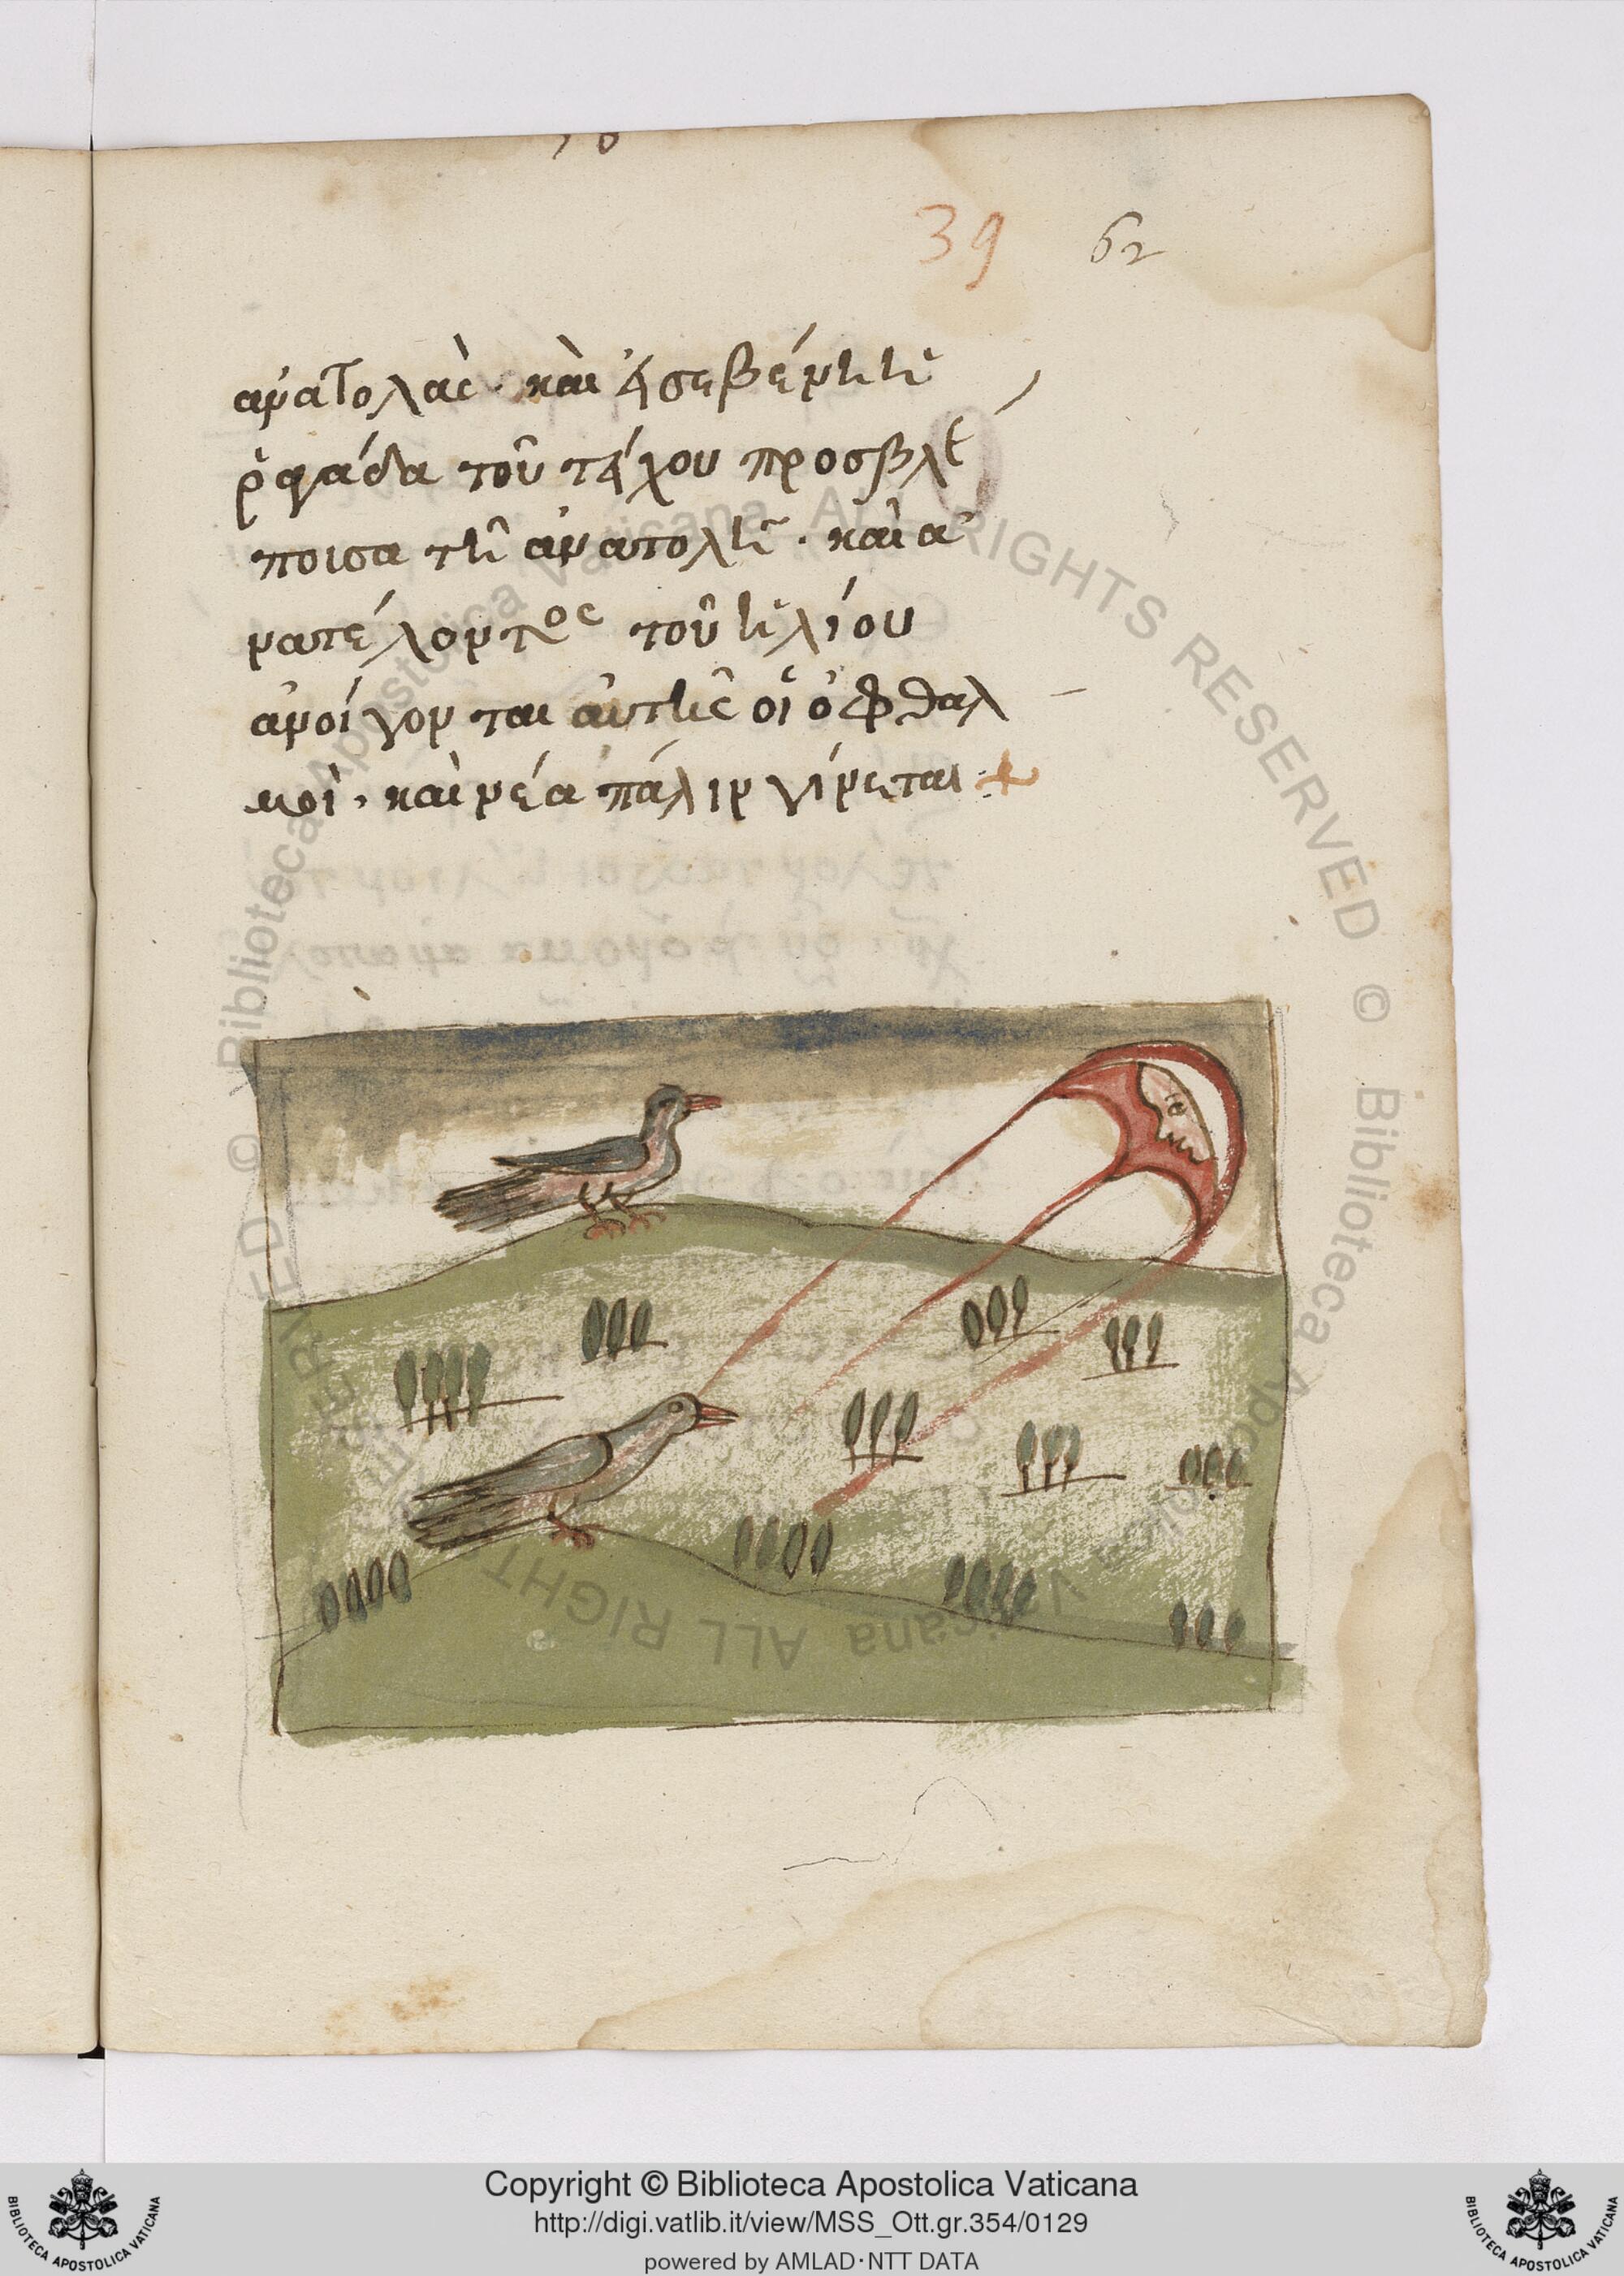 39 62
ἀνατολὰς. καὶ εἰσεβένει εἰ
ῥφάδα τοῦ τείχου προσβλέ
ποισα τῆ ἀνατολῆ. καὶ ἀ
νατέλοντος τοῦ ἡλίου
ἀνοίγονται αὐτῆς οἱ ὀφθαλ
μοὶ. καὶ νέα πάλιν γίνεται +
© Biblioteca Apostolica Vaticana ALL RIGHTS RESERVED © Biblioteca Apostolica Vaticana ALL RIGHTS RESERVED
Copyright © Biblioteca Apostolica Vaticana
http://digi.vatlib.it/view/MSS_Ott.gr.354/0129
powered by AMLAD·NTT DATA
BIBLIOTECA APOSTOLICA VATICANA
BIBLIOTECA APOSTOLICA VATICANA